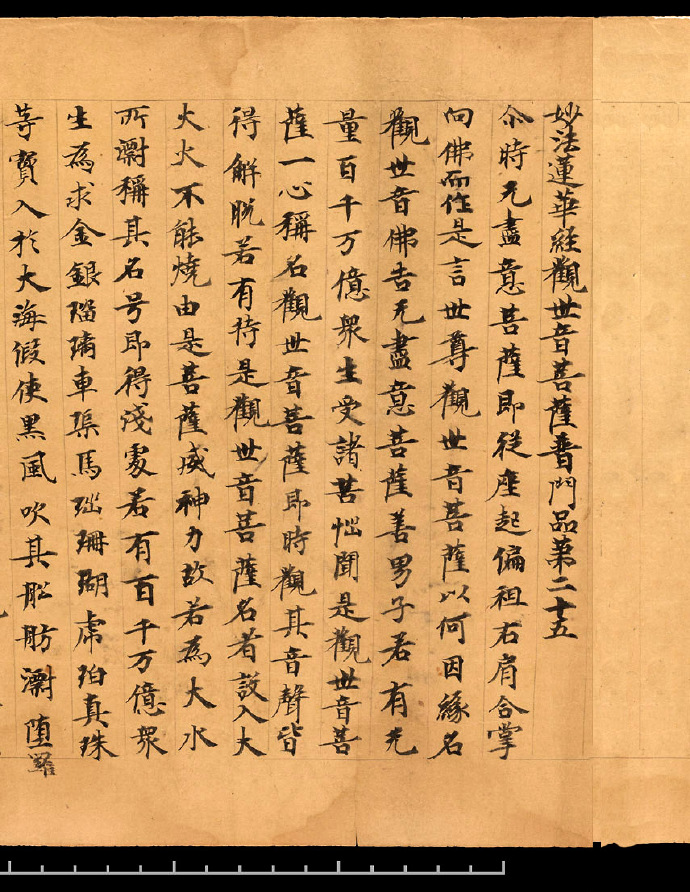 妙法蓮華経觀世音菩薩普門品第二十五
尒時无盡意菩薩即從座起偏祖右肩合掌
向佛而作是言世尊觀世音菩薩以何因緣名
觀世音佛告无盡意菩薩善男子若有无
量百千万億衆生受諸苦惱聞是觀世音菩
薩一心稱名觀世音菩薩即時觀其音聲皆
得解脱若有持是觀世音菩薩名者設入大
火火不能燒由是菩薩威神力故若為大水
所漂稱其名号即得淺處若有百千万億衆
生為求金銀瑠璃車渠馬瑙珊瑚虎珀真珠
等寶入於大海假使黒風吹其舩舫漂堕羅